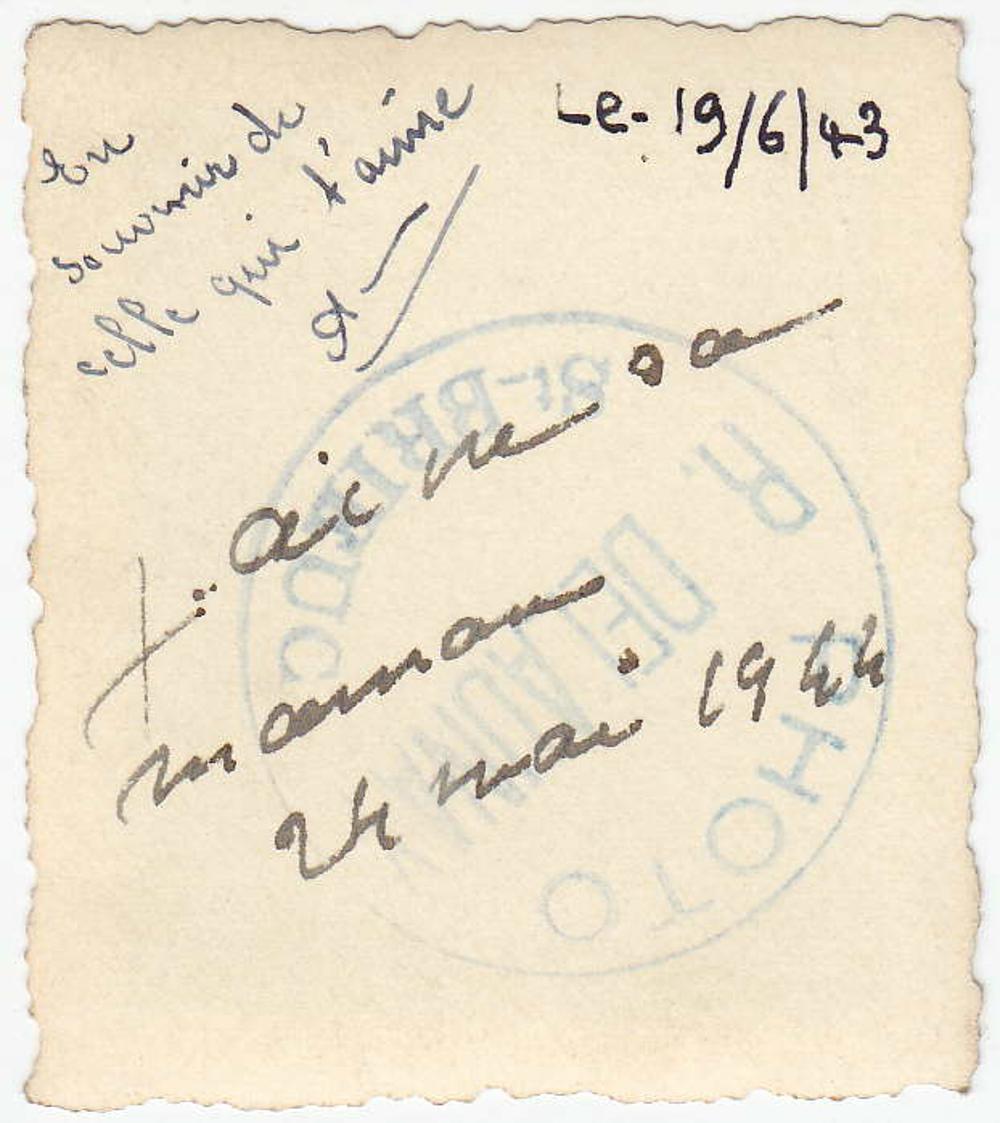 Le - 19/6/43
En
souvenir de
celle qui t'aime
aime sa
maman
24 mai 1944
St-BRIEUC
R. DELAUNAY
PHOTO